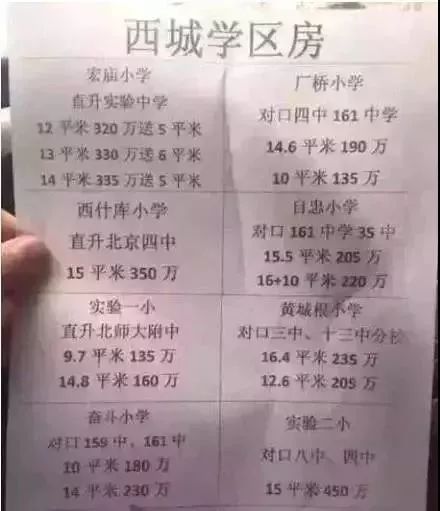 西城学区房
宏庙小学
直升实验中学
12 平米 320 万送 5 平米
13 平米 330 万送 6 平米
14 平米 335 万送 5 平米
广桥小学
对口四中 161 中学
14.6 平米 190 万
10 平米 135 万
西什库小学
直升北京四中
15 平米 350 万
自忠小学
对口 161 中学 35 中
15.5 平米 205 万
16+10 平米 220 万
实验一小
直升北师大附中
9.7 平米 135 万
14.8 平米 160 万
黄城根小学
对口三中、十三中分校
16.4 平米 235 万
12.6 平米 205 万
奋斗小学
对口 159 中、161 中
10 平米 180 万
14 平米 230 万
实验二小
对口八中、四中
15 平米 450 万